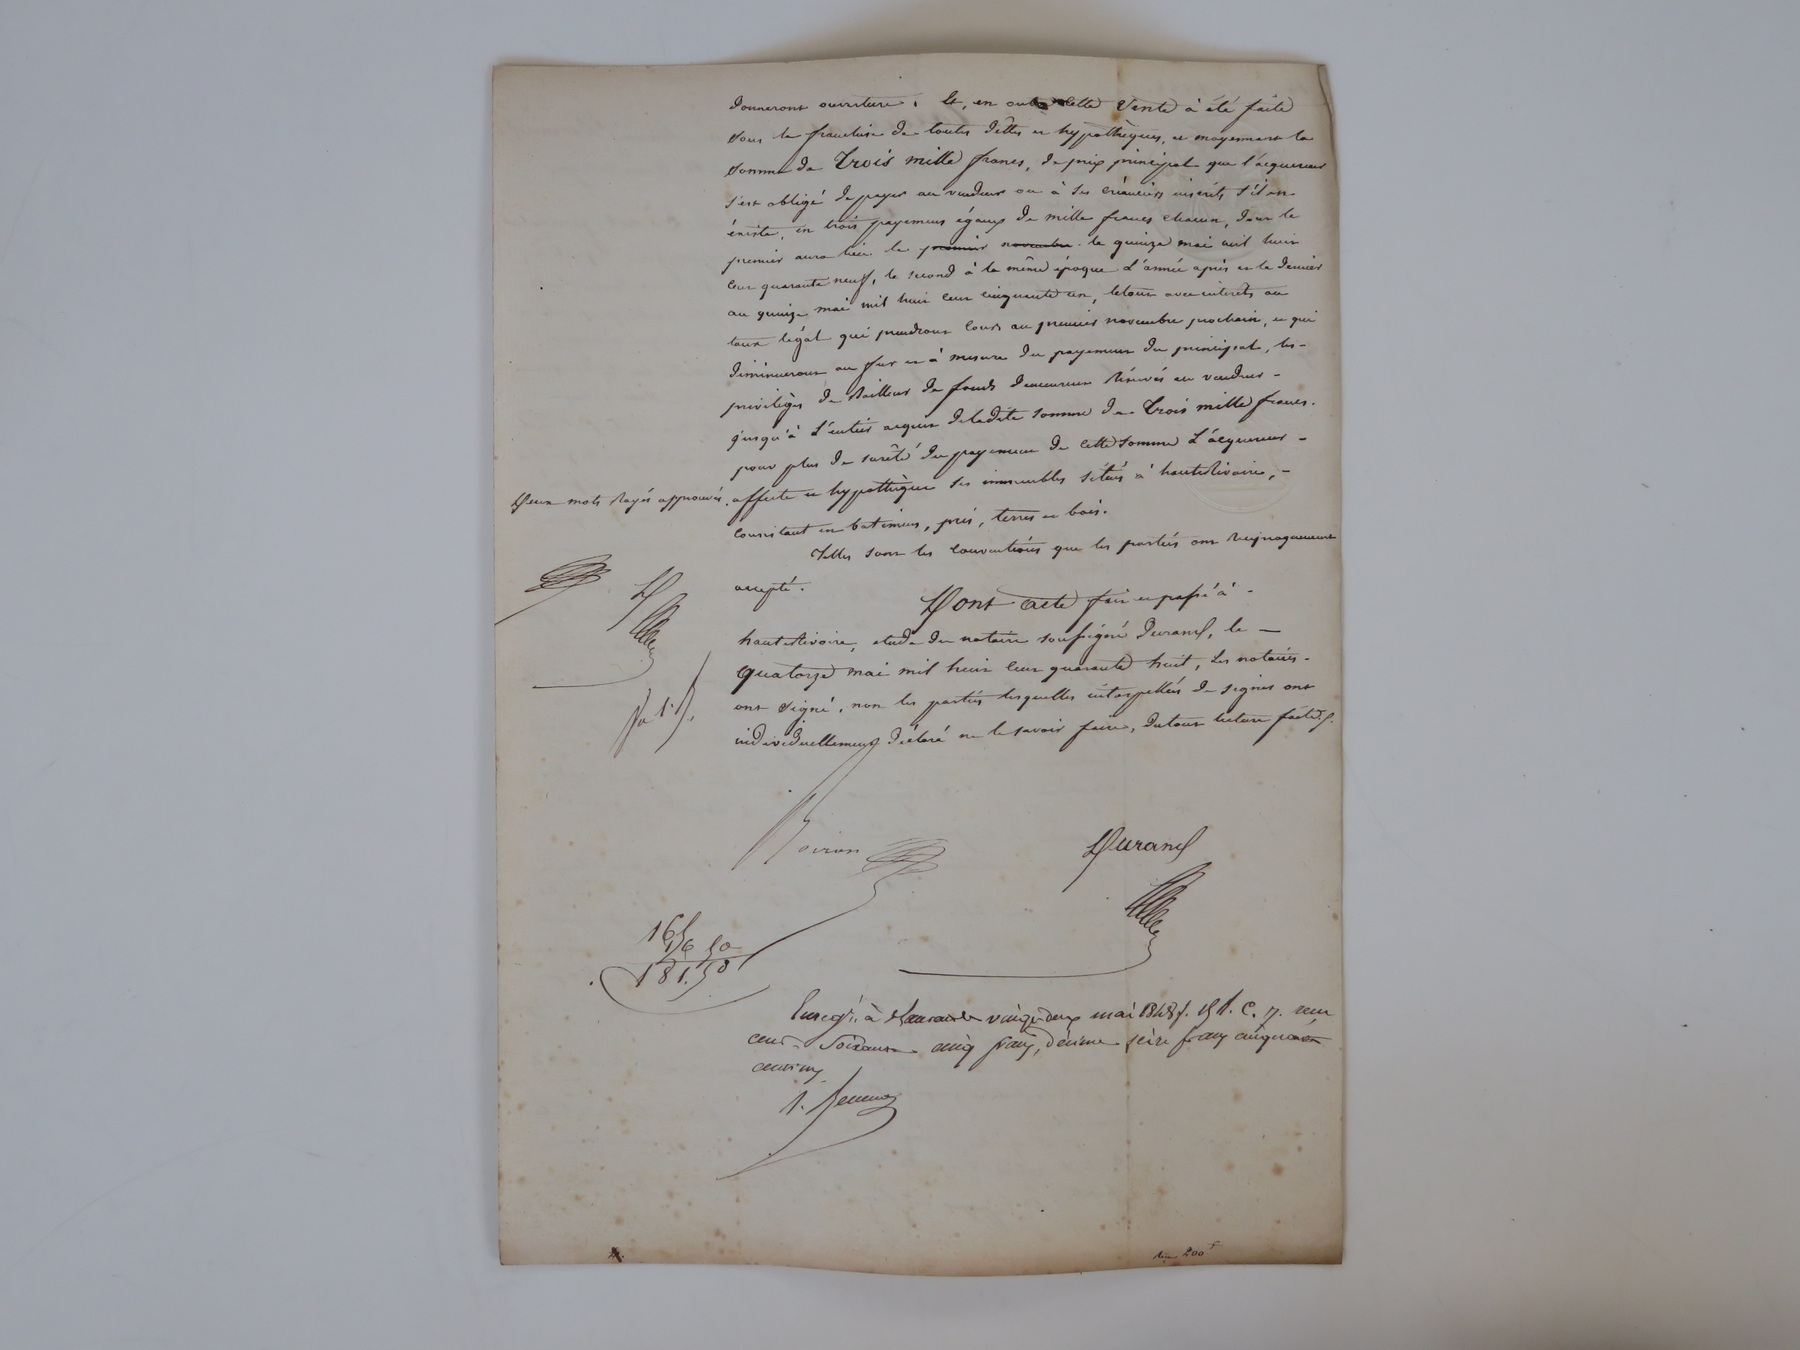 donneront ouverture. Et, en outre cette Vente a été faite
sous la franchise de toutes dettes et hypothèques, et moyennant la
somme de Trois mille francs, de prix principal que l'acquereur
s'est obligé de payer au vendeur ou à ses créanciers inscrits s'il en
éxiste, en trois payemens égaux de mille francs chacun, dont le
premier aura lieu le premier novembre le quinze mai mil huit
cent quarante neuf, le second à la même époque d'année après et le dernier
au quinze mai mil huit cent cinquante un, le tout avec intérêts au
taux légal qui prendront cours au premier novembre prochain, et qui
diminueront au fur et à mesure du payement du principal, les
privilèges de Bailleur de fonds demeureront réservés au vendeur
jusqu'à l'entier acquit de ladite somme de Trois mille francs.
pour plus de sureté du payement de cette somme l'acquereur
Deux mots rayés approuvés. affecte et hypothèque ses immeubles situés à hauterivoire,
consistant en batimens, prés, terres et bois.
Telles sont les conventions que les parties ont réciproquement
accepté.
Dont acte fait et passé à
hauterivoire, etude du notaire soussigné Durand, le
quatorze mai mil huit cent quarante huit, les notaires
ont signé, non les parties lesquelles interpellées de signer ont
individuellement déclaré ne le savoir faire, du tout lecture faite.
Durand
165
16 50
181.50
Enreg. à vingt deux mai 1848 f. C. 7. reçu
cent soixante cinq francs, décime seize francs cinquante
centimes
200 f